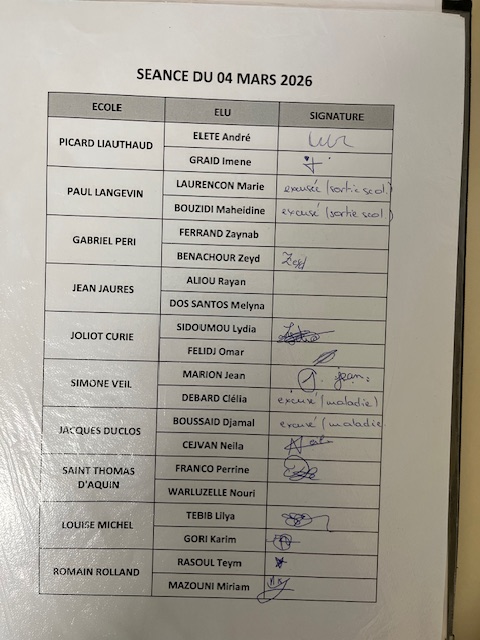 SEANCE DU 04 MARS 2026
ECOLE ELU SIGNATURE
PICARD LIAUTHAUD
ELETE André
GRAID Imene
PAUL LANGEVIN
LAURENCON Marie excusée (sortie scol.)
BOUZIDI Maheidine excusé (sortie scol)
GABRIEL PERI
FERRAND Zaynab
BENACHOUR Zeyd Zeyd
JEAN JAURES
ALIOU Rayan
DOS SANTOS Melyna
JOLIOT CURIE
SIDOUMOU Lydia
FELIDJ Omar
SIMONE VEIL
MARION Jean J. jean.
DEBARD Clélia excusé (maladie)
JACQUES DUCLOS
BOUSSAID Djamal excusé (maladie
CEJVAN Neila
SAINT THOMAS
D'AQUIN
FRANCO Perrine
WARLUZELLE Nouri
LOUISE MICHEL
TEBIB Lilya
GORI Karim
ROMAIN ROLLAND
RASOUL Teym
MAZOUNI Miriam